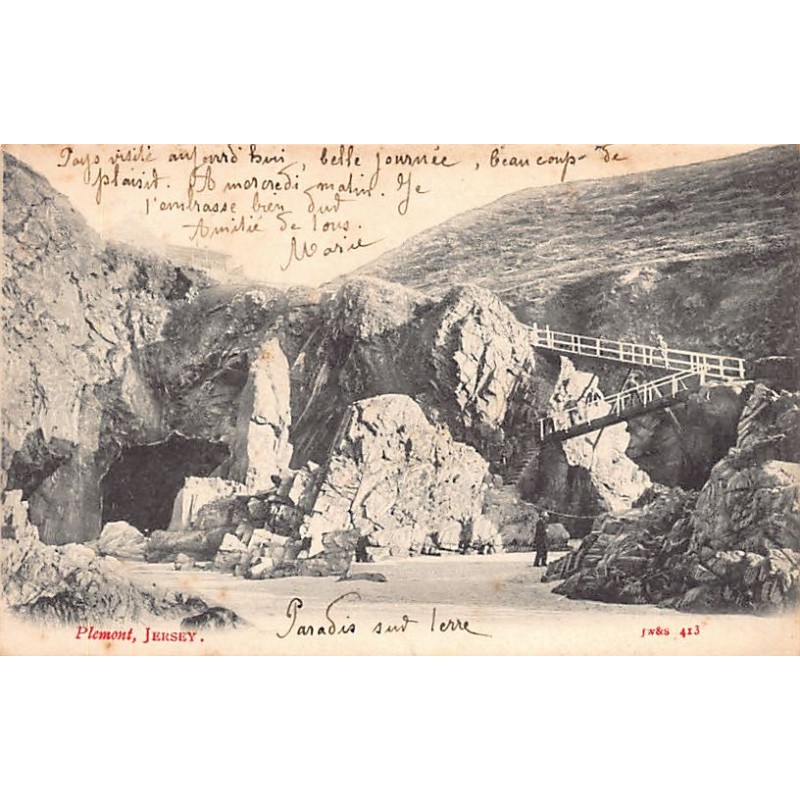 Pays visité aujourd'hui, belle journée, beaucoup de
plaisir. A mercredi matin. Je
t'embrasse bien dur
Amitié de tous.
Marie
Paradis sur terre
Plemont, JERSEY.
JW&S 413